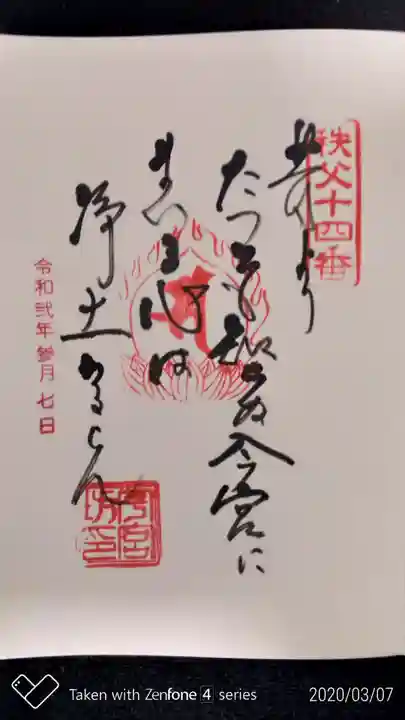 秩父十四番
昔より
たつとも知らぬ今宮に
まいる心は
浄土なるらん
令和弐年参月七日
Taken with Zenfone 4 series
2020/03/07